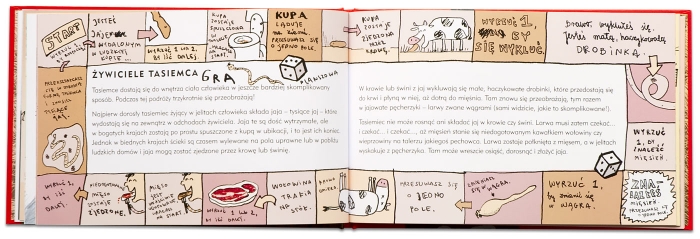 START
JESTEŚ
JAJEM
W WYDALONYM
W UBIKACJI,
KUPIE...
WYRZUĆ 1 LUB 2,
BY IŚĆ DALEJ.
KUPA
ZOSTAJE
SPUSZCZONA
KUPA
LĄDUJE
NA ZIEMI.
PRZESUWASZ SIĘ
O JEDNO POLE.
KUPA
ZOSTAJE
ZJEDZONA
PRZEZ
KROWĘ.
WYRZUĆ 1,
BY
SIĘ WYKLUĆ.
Brawo! wyklułeś się.
Jesteś małą, haczykowatą
DROBINKĄ.
ŻYWICIELE TASIEMCA
GRA
PLANSZOWA
Tasiemce dostają się do wnętrza ciała człowieka w jeszcze bardziej skomplikowany
sposób. Podczas tej podróży trzykrotnie się przeobrażają!
Najpierw dorosły tasiemiec żyjący w jelitach człowieka składa jaja – tysiące jaj – które
wydostają się na zewnątrz w odchodach żywiciela. Jaja te są dość wytrzymałe, ale
w bogatych krajach zostają po prostu spuszczone z kupą w ubikacji, i to jest ich koniec.
Jednak w biednych krajach ścieki są czasem wylewane na pola uprawne lub w pobliżu
ludzkich domów i jaja mogą zostać zjedzone przez krowę lub świnię.
W krowie lub świni z jaj wykluwają się małe, haczykowate drobinki, które przedostają się
do krwi i płyną w niej, aż dotrą do mięśnia. Tam znowu się przeobrażają, tym razem
w jajowate pęcherzyki – larwy zwane wągrami (sami widzicie, jakie to skomplikowane!).
Tasiemiec nie może rosnąć ani składać jaj w krowie czy świni. Larwa musi zatem czekać...
i czekać... i czekać..., aż mięsień stanie się niedogotowanym kawałkiem wołowiny czy
wieprzowiny na talerzu jakiegoś pechowca. Larwa zostaje połknięta z mięsem, a w jelitach
wyskakuje z pęcherzyka. Tam może wreszcie osiąść, dorosnąć i złożyć jaja.
WYRZUĆ
1, BY
ZNALEŹĆ
MIĘSIEŃ.
ZNA-
LAZŁEŚ
MIĘSIEŃ.
WYRZUĆ 1,
by zmienić się
w WĄGRA.
ZMIENIASZ SIĘ
W WĄGRA.
PRZESUWASZ SIĘ
O JEDNO
POLE.
WOŁOWINA
TRAFIA
NA
STÓŁ.
WYRZUĆ 1 LUB 2,
BY IŚĆ DALEJ.
MIĘSO
JEST
WRACASZ
NA START
MIĘSO
ZOSTAJE
ZJEDZONE.
WYRZUĆ 1,
BY IŚĆ
DALEJ.